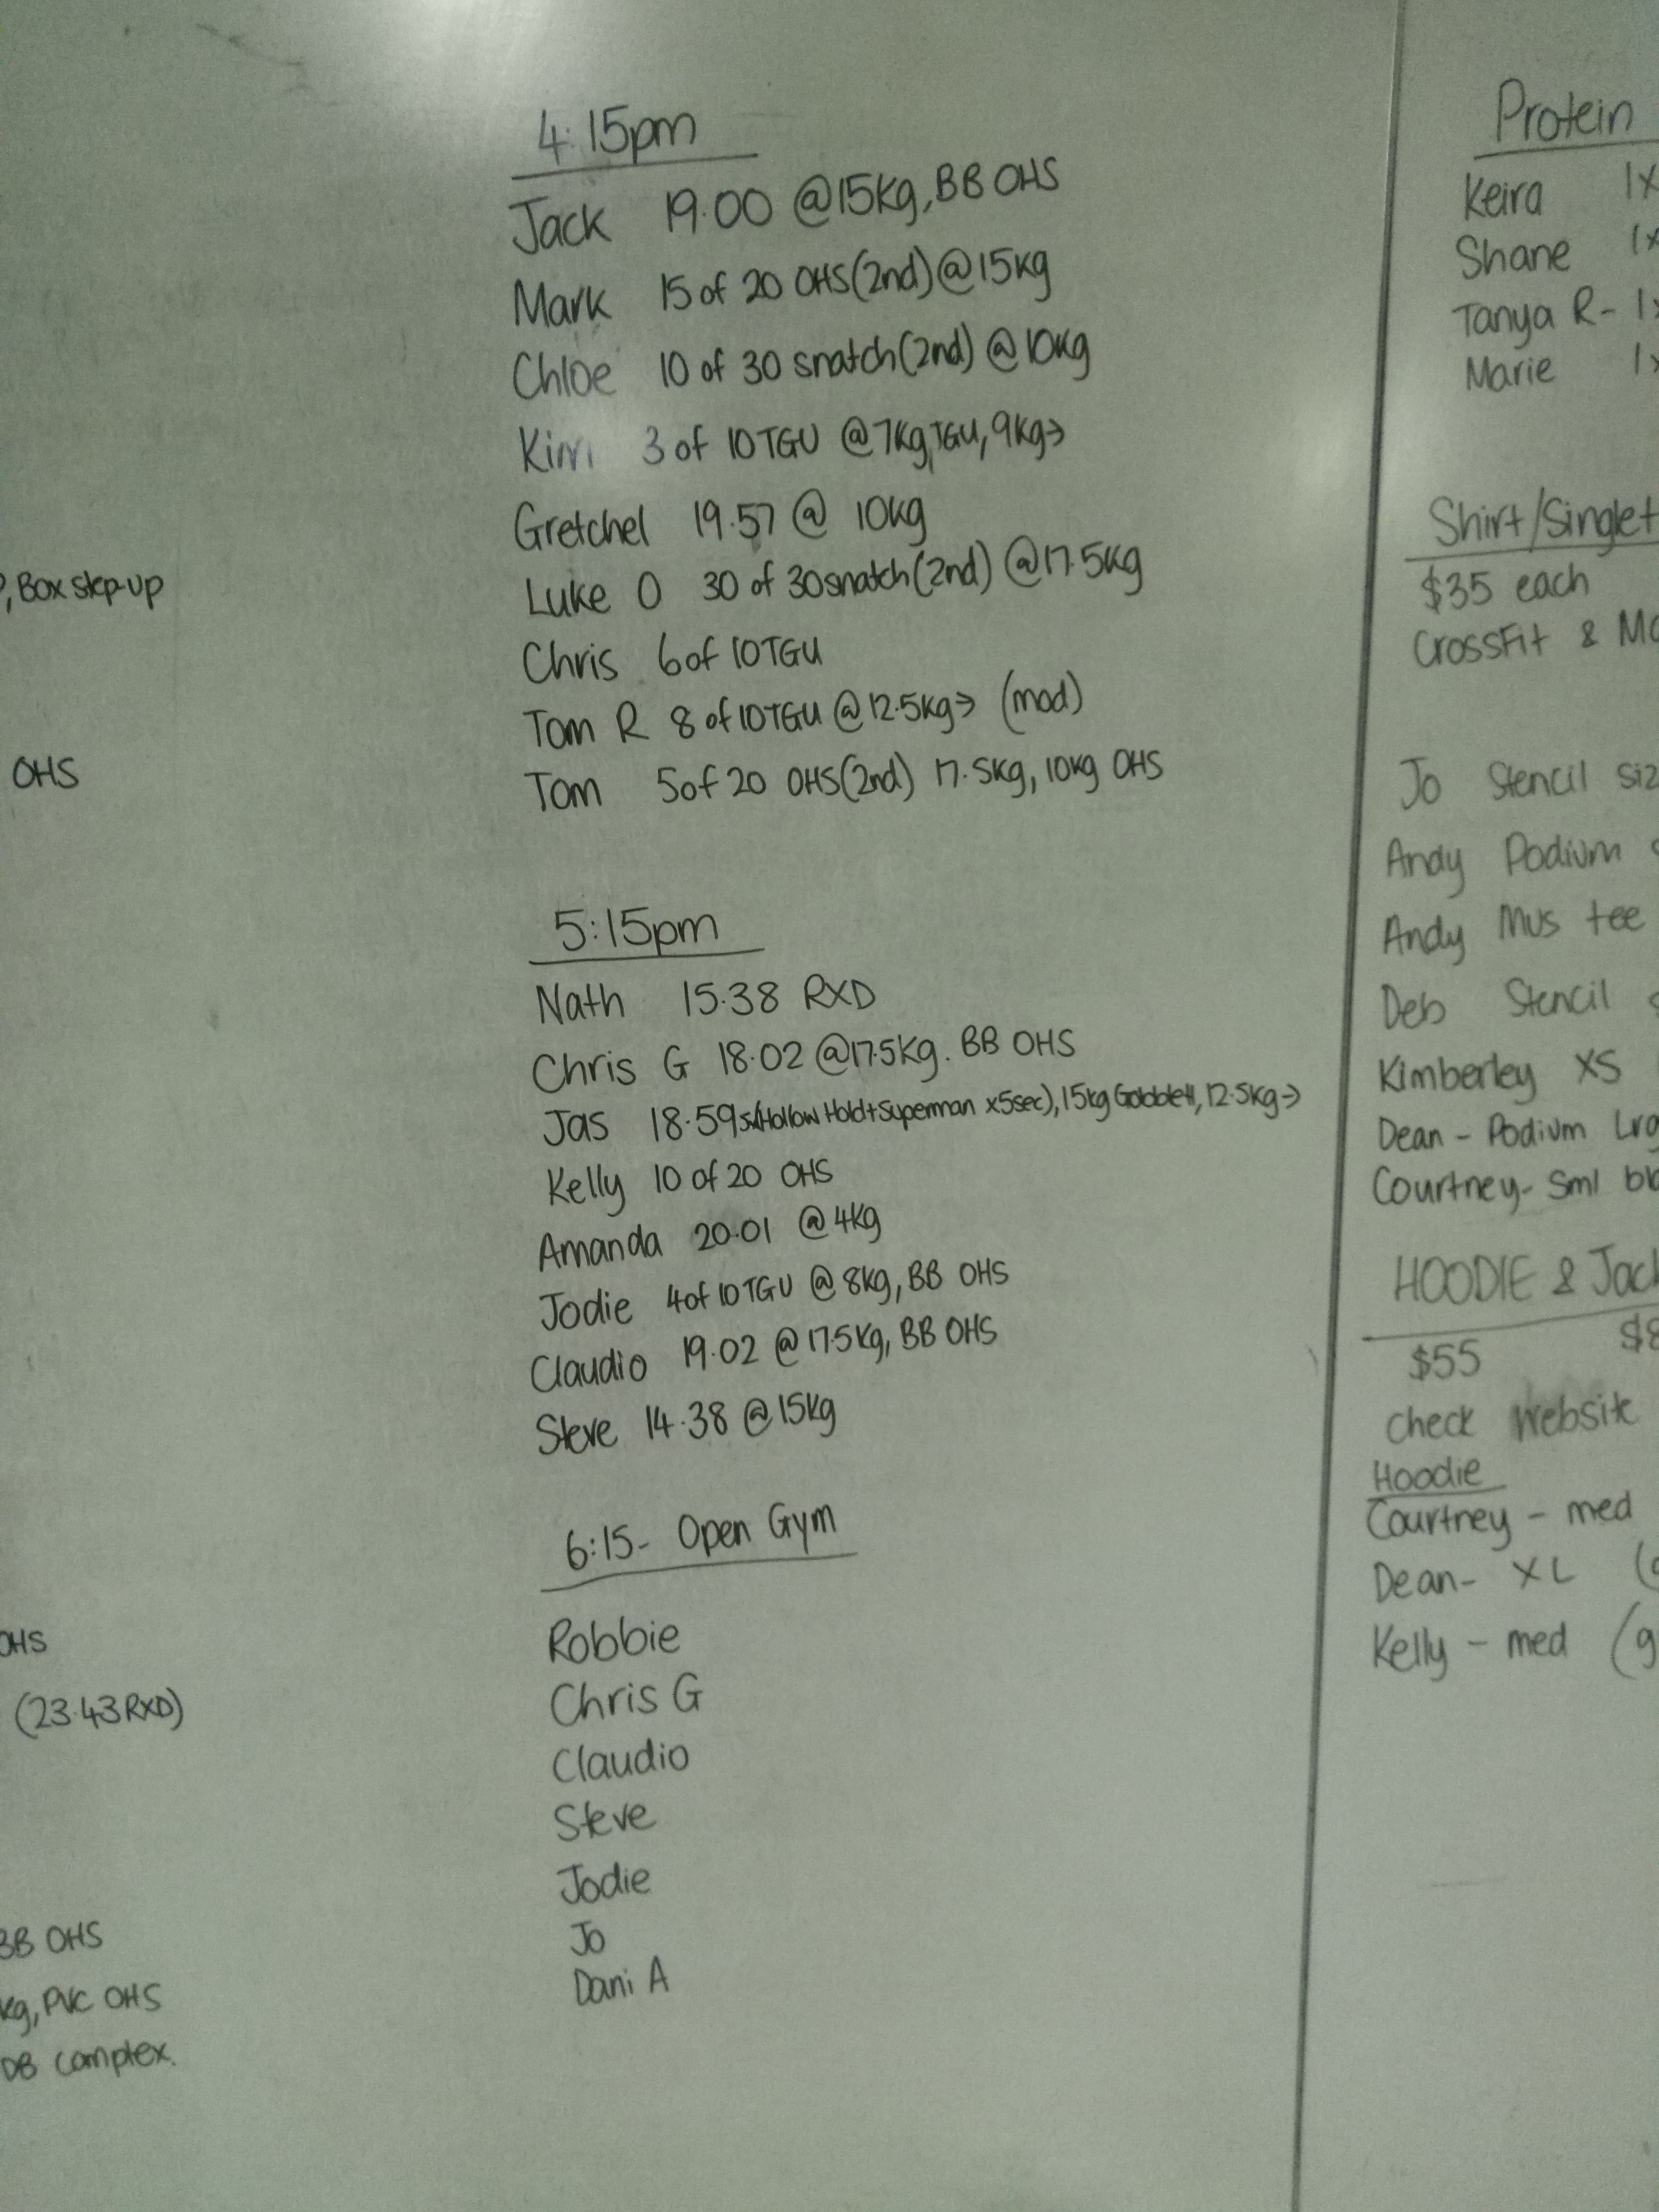 4:15pm
Jack 19.00 @15Kg, BB OHS
Mark 15 of 20 OHS(2nd)@15kg
Chloe 10 of 30 snatch(2nd) @10kg
Kim 3 of 10 TGU @7Kg TGU, 9Kg→
Gretchel 19.57 @ 10kg
Luke O 30 of 30 snatch(2nd) @17.5kg
Chris 6 of 10 TGU
Tom R 8 of 10 TGU @12.5kg→ (mod)
Tom 5 of 20 OHS(2nd) 17.5kg, 10kg OHS
5:15pm
Nath 15.38 RXD
Chris G 18.02 @17.5Kg. BB OHS
Jas 18.59 5x(Hollow Hold+Superman x5sec), 15kg 12.5kg→
Kelly 10 of 20 OHS
Amanda 20.01 @4kg
Jodie 4 of 10 TGU @ 8kg, BB OHS
Claudio 19.02 @17.5kg, BB OHS
Steve 14.38 @15kg
6:15- Open Gym
Robbie
Chris G
Claudio
Steve
Jodie
Jo
Dani A
, Box step-up
OHS
OHS
(23.43 RXD)
BB OHS
kg, PVC OHS
DB complex.
Protein
Keira 1x
Shane 1x
Tanya R- 1x
Marie 1x
Shirt/Singlet
$35 each
CrossFit & Mo
Jo Stencil siz
Andy Podium
Andy Mus tee
Deb Stencil
Kimberley XS
Dean - Podium Lrg
Courtney- Sml bl
HOODIE & Jack
$55 $8
check website
Hoodie
Courtney - med
Dean- XL (
Kelly - med (g